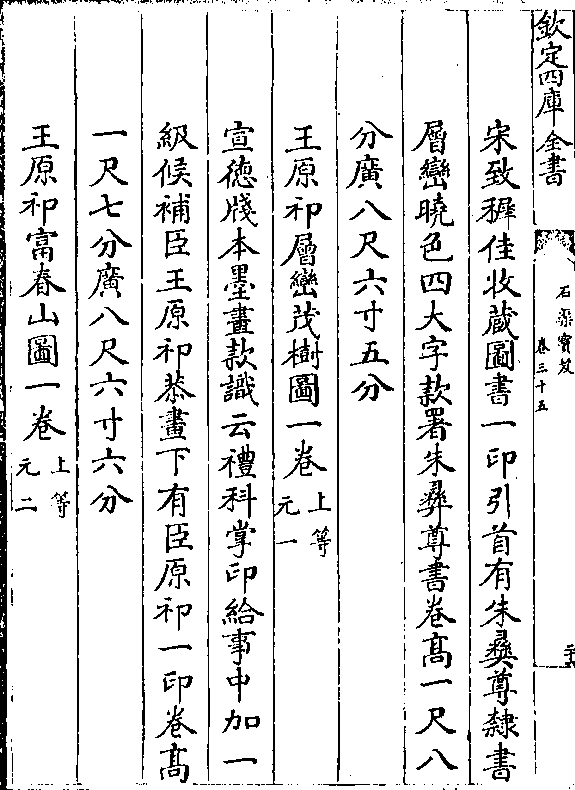 欽定四庫全書
石渠寶笈
卷三十五
宋致穉佳收蔵圖書一印引首有朱彞尊隸書
層巒曉色四大字款署朱彞尊書卷髙一尺八
分廣八尺六寸五分
王原祁層巒茂樹圖一卷 上等 元一
宣徳牋本墨畫款識云禮科掌印給事中加一
級候補臣王原祁恭畫下有臣原祁一印卷髙
一尺七分廣八尺六寸六分
王原祁富春山圖一卷 上等 元二